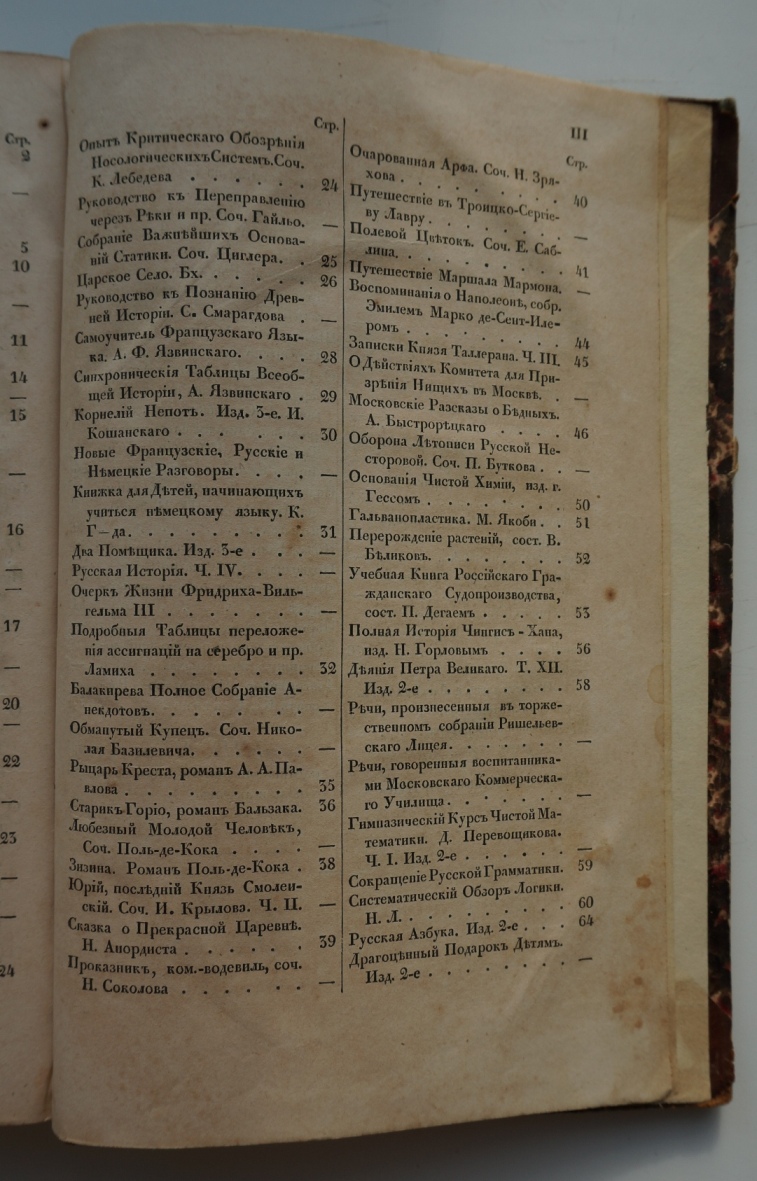 Стр.
2
—
5
10
—
11
14
—
15
—
16
—
—
17
—
20
—
22
—
23
—
—
24
Стр.
Опытъ Критическаго Обозрѣнія
НосологическихъСистемъ.Соч.
К. Лебедева . . . . . . 24
Руководство къ Переправленію
черезъ Рѣки и пр. Соч. Гайльо. —
Собраніе Важнѣйшихъ Основа-
ній Статики. Соч. Циглера. . 25
Царское Село. Бх. . . . . . 26
Руководство къ Познанію Древ-
ней Исторіи. С. Смарагдова . —
Самоучитель Французскаго Язы-
ка. А. Ф. Язвинскаго. . . . 28
Синхроническія Таблицы Всеоб-
щей Исторіи, А. Язвинскаго . 29
Корнелій Непотъ. Изд. 3-е. И.
Кошанскаго . . . . . . 30
Новые Французскіе, Русскіе и
Нѣмецкіе Разговоры. . . . —
Книжка для Дѣтей, начинающихъ
учиться нѣмецкому языку. К.
Г—да. . . . . . . . . 31
Два Помѣщика. Изд. 3-е . . . —
Русская Исторія. Ч. IV. . . . —
Очеркъ Жизни Фридриха-Виль-
гельма III . . . . . . . —
Подробныя Таблицы переложе-
нія ассигнацій на серебро и пр.
Ламиха . . . . . . . . 32
Балакирева Полное Собраніе А-
некдотовъ. . . . . . . —
Обманутый Купецъ. Соч. Нико-
лая Базилевича. . . . . . —
Рыцарь Креста, романъ А. А.Па-
влова . . . . . . . . . 35
Старикъ Горіо, романъ Бальзака. 36
Любезный Молодой Человѣкъ,
Соч. Поль-де-Кока . . . . —
Зизина. Романъ Поль-де-Кока . 38
Юрій, послѣдній Князь Смолен-
скій. Соч. И. Крылова. Ч. II. —
Сказка о Прекрасной Царевнѣ.
Н. Анордиста . . . . . . 39
Проказникъ, ком.-водевиль, соч.
Н. Соколова . . . . . . —
III
Стр.
Очарованная Арфа. Соч. Н. Зря-
хова . . . . . . . . 40
Путешествіе въ Троицко-Сергіе-
ву Лавру . . . . . . . —
Полевой Цвѣтокъ. Соч. Е. Саб-
лина. . . . . . . . . 41
Путешествіе Маршала Мармона. —
Воспоминанія о Наполеонѣ, собр.
Эмилемъ Марко де-Сент-Иле-
ромъ . . . . . . . . 44
Записки Князя Таллерана. Ч. III. 45
О Дѣйствіяхъ Комитета для При-
зрѣнія Нищихъ въ Москвѣ. . —
Московскіе Разсказы о Бѣдныхъ.
А. Быстрорѣцкаго . . . . 46
Оборона Лѣтописи Русской Не-
сторовой. Соч. П. Буткова . . —
Основанія Чистой Химіи, изд. г.
Гессомъ . . . . . . . 50
Гальванопластика. М. Якоби . . 51
Перерожденіе растеній, сост. В.
Бѣликовъ. . . . . . . 52
Учебная Книга Россійскаго Гра-
жданскаго Судопроизводства,
сост. П. Дегаемъ . . . . . 53
Полная Исторія Чингисъ-Хана,
изд. Н. Горловымъ . . . . 56
Дѣянія Петра Великаго. Т. XII.
Изд. 2-е . . . . . . . 58
Рѣчи, произнесенныя въ торже-
ственномъ собраніи Ришельев-
скаго Лицея. . . . . . . —
Рѣчи, говоренныя воспитанника-
ми Московскаго Коммерческа-
го Училища. . . . . . . —
Гимназическій Курсъ Чистой Ма-
тематики. Д. Перевощикова.
Ч. I. Изд. 2-е . . . . . . —
Сокращеніе Русской Грамматики. 59
Систематическій Обзоръ Логики.
Н. Л. . . . . . . . . 60
Русская Азбука. Изд. 2-е . . . 64
Драгоцѣнный Подарокъ Дѣтямъ.
Изд. 2-е . . . . . . . —